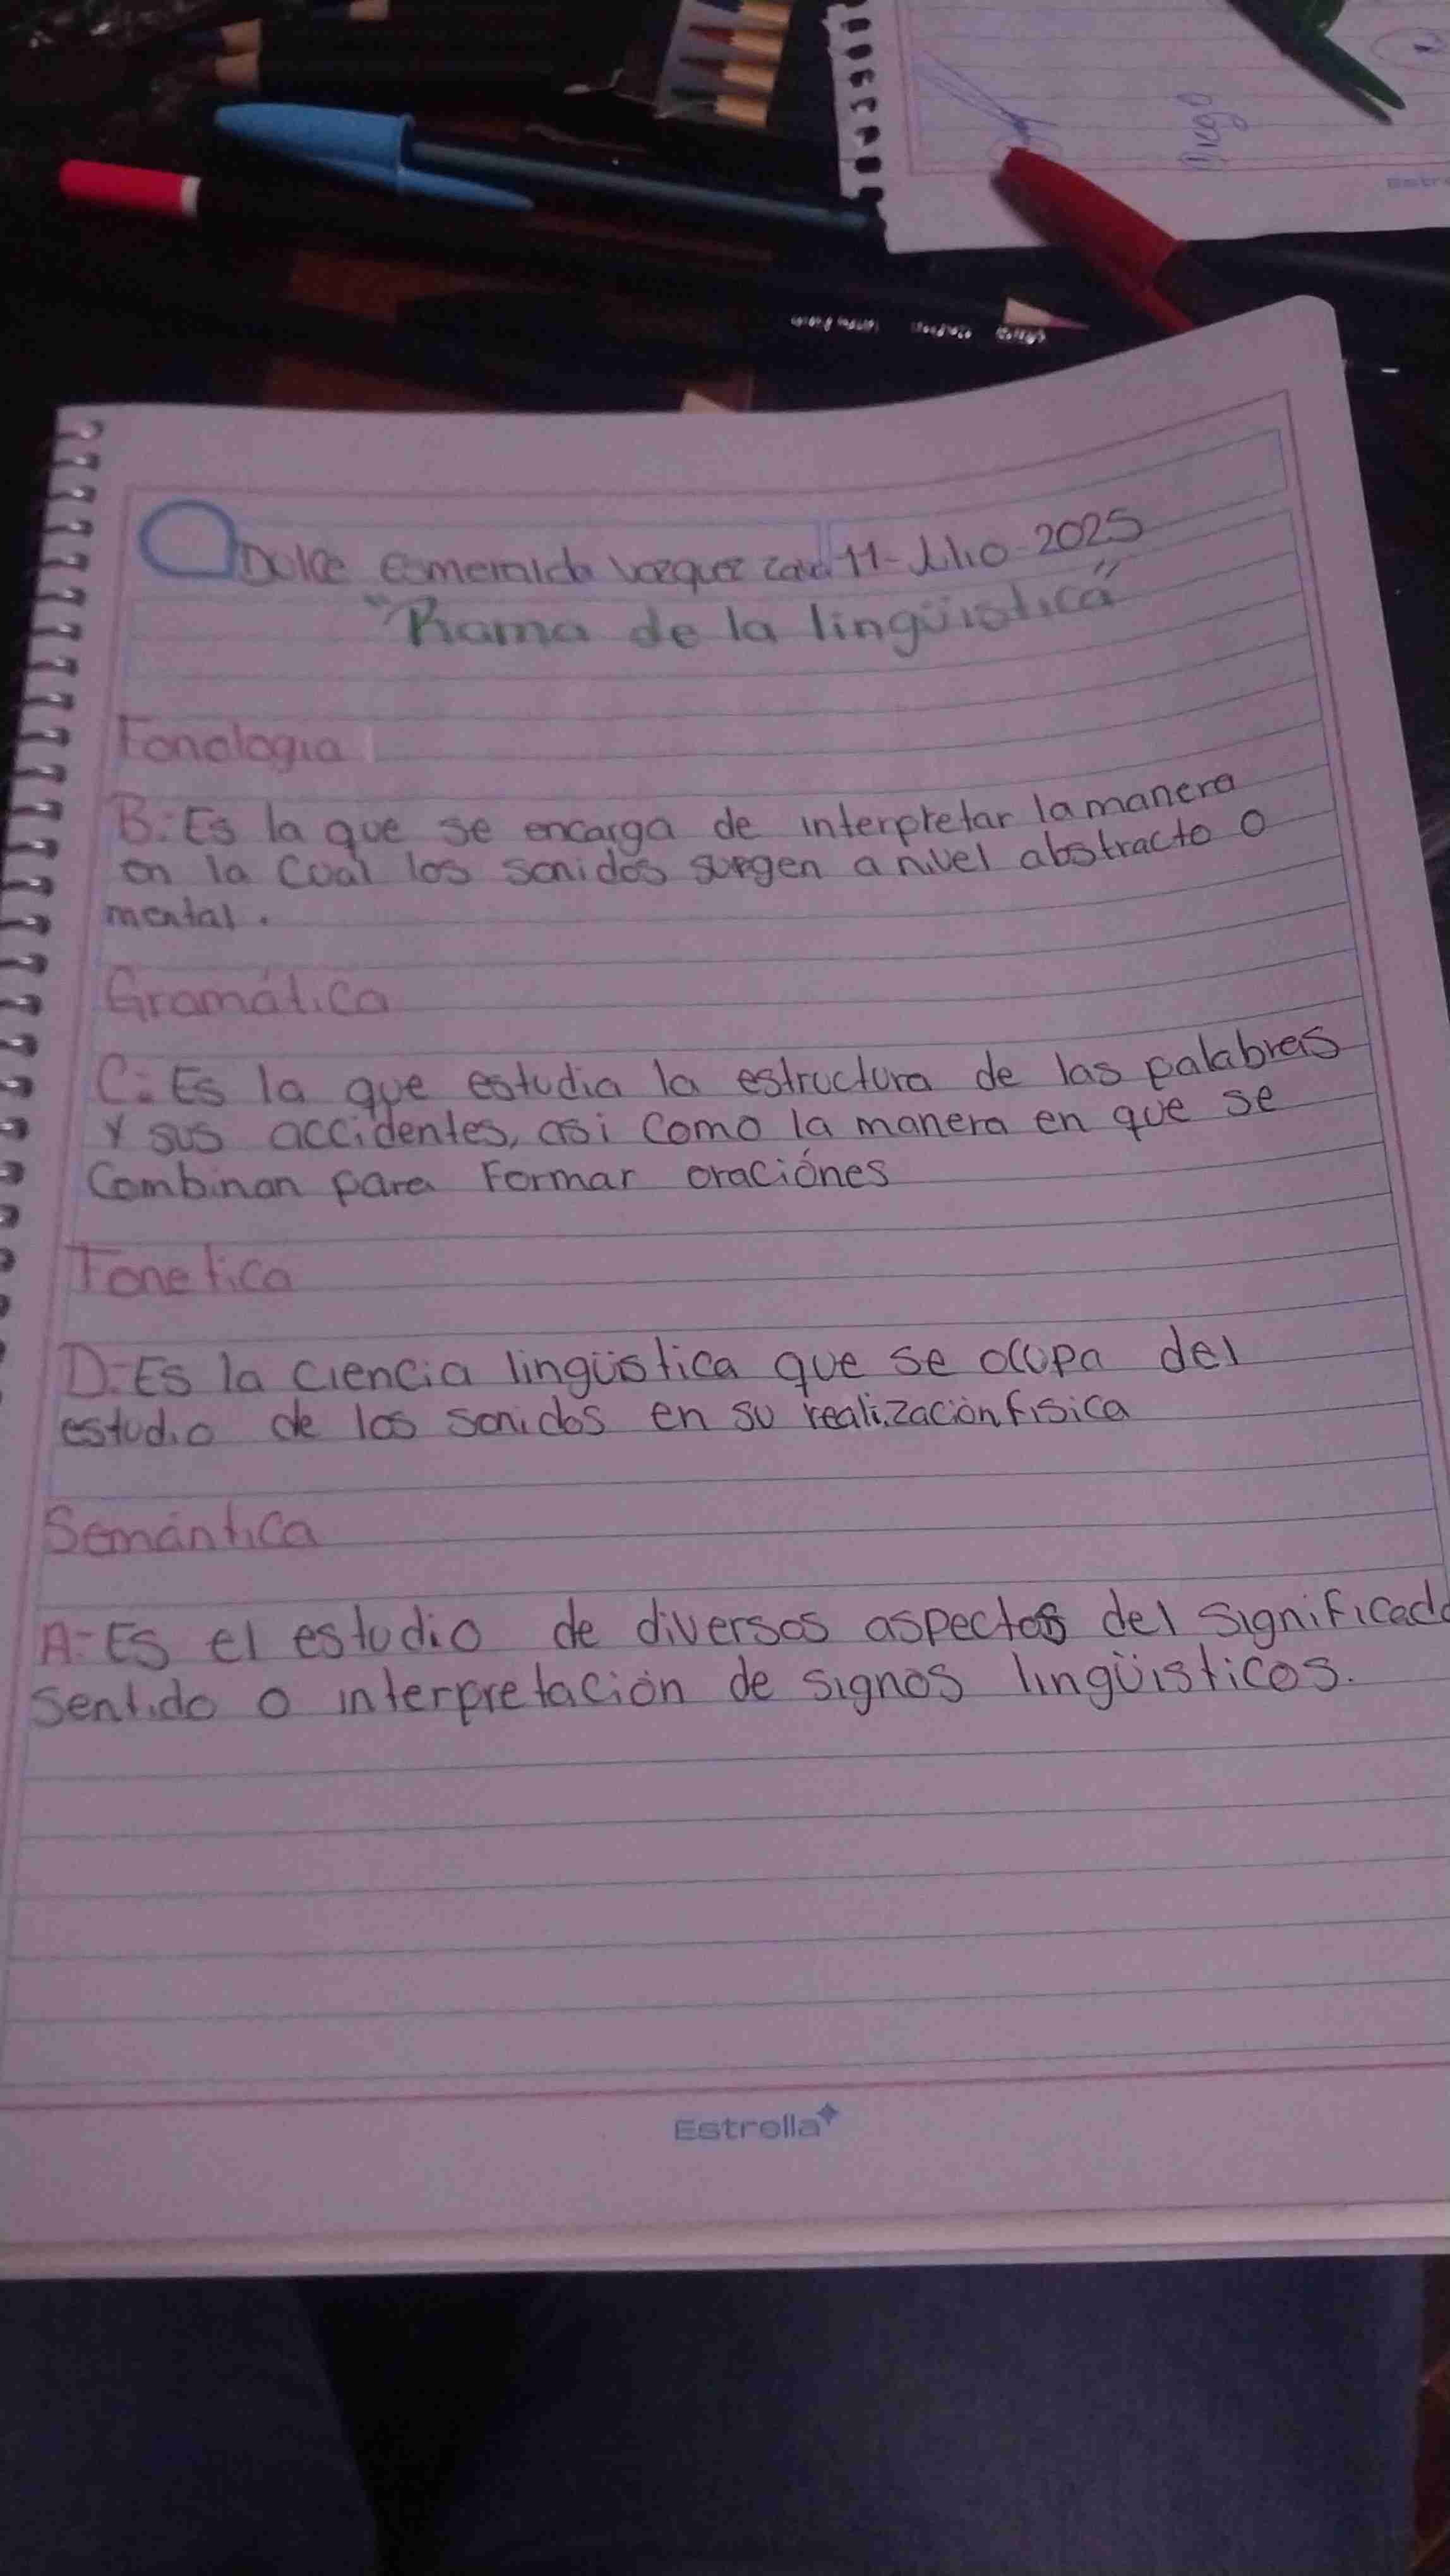 Diego
Dulce Esmeralda Vazquez 11-Julio-2025
"Rama de la lingüistica"
Fonologia
B: Es la que se encarga de interpretar la manera
en la cual los sonidos surgen a nivel abstracto o
mental.
Gramática
C: Es la que estudia la estructura de las palabras
y sus accidentes, asi como la manera en que se
Combinan para Formar oraciónes
Fonetica
D: Es la ciencia lingüistica que se ocupa del
estudio de los sonidos en su realización fisica
Semántica
A: Es el estudio de diversos aspectos del significado
sentido o interpretación de signos lingüisticos.
Estrella